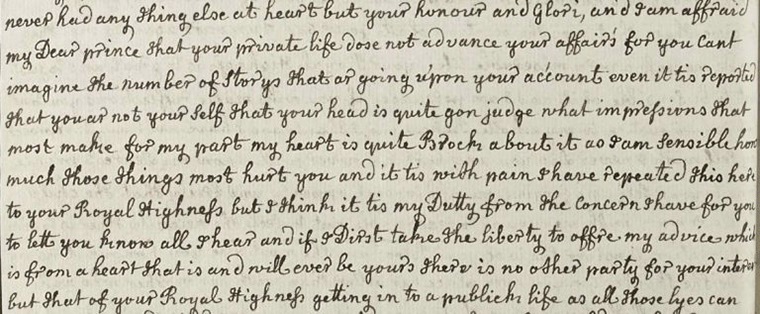 never had any thing else at heart but your honour and Glori, and I am affraid
my Dear prince that your private life dose not advance your affairs for you Cant
imagine the number of Storys that ar going upon your account even it tis reported
that you ar not your Self that your head is quite gon judge what impressions that
most make for my part my heart is quite Brock about it as I am Sensible how
much those things most hurt you and it tis with pain I have repeated this here
to your Royal Highness but I think it tis my Dutty from the Concern I have for you
to lett you know all I hear and if I Dirst take the liberty to offre my advice which
is from a heart that is and will ever be yours there is no other party for your
but that of your Royal Highness getting in to a publick life as all those lyes can